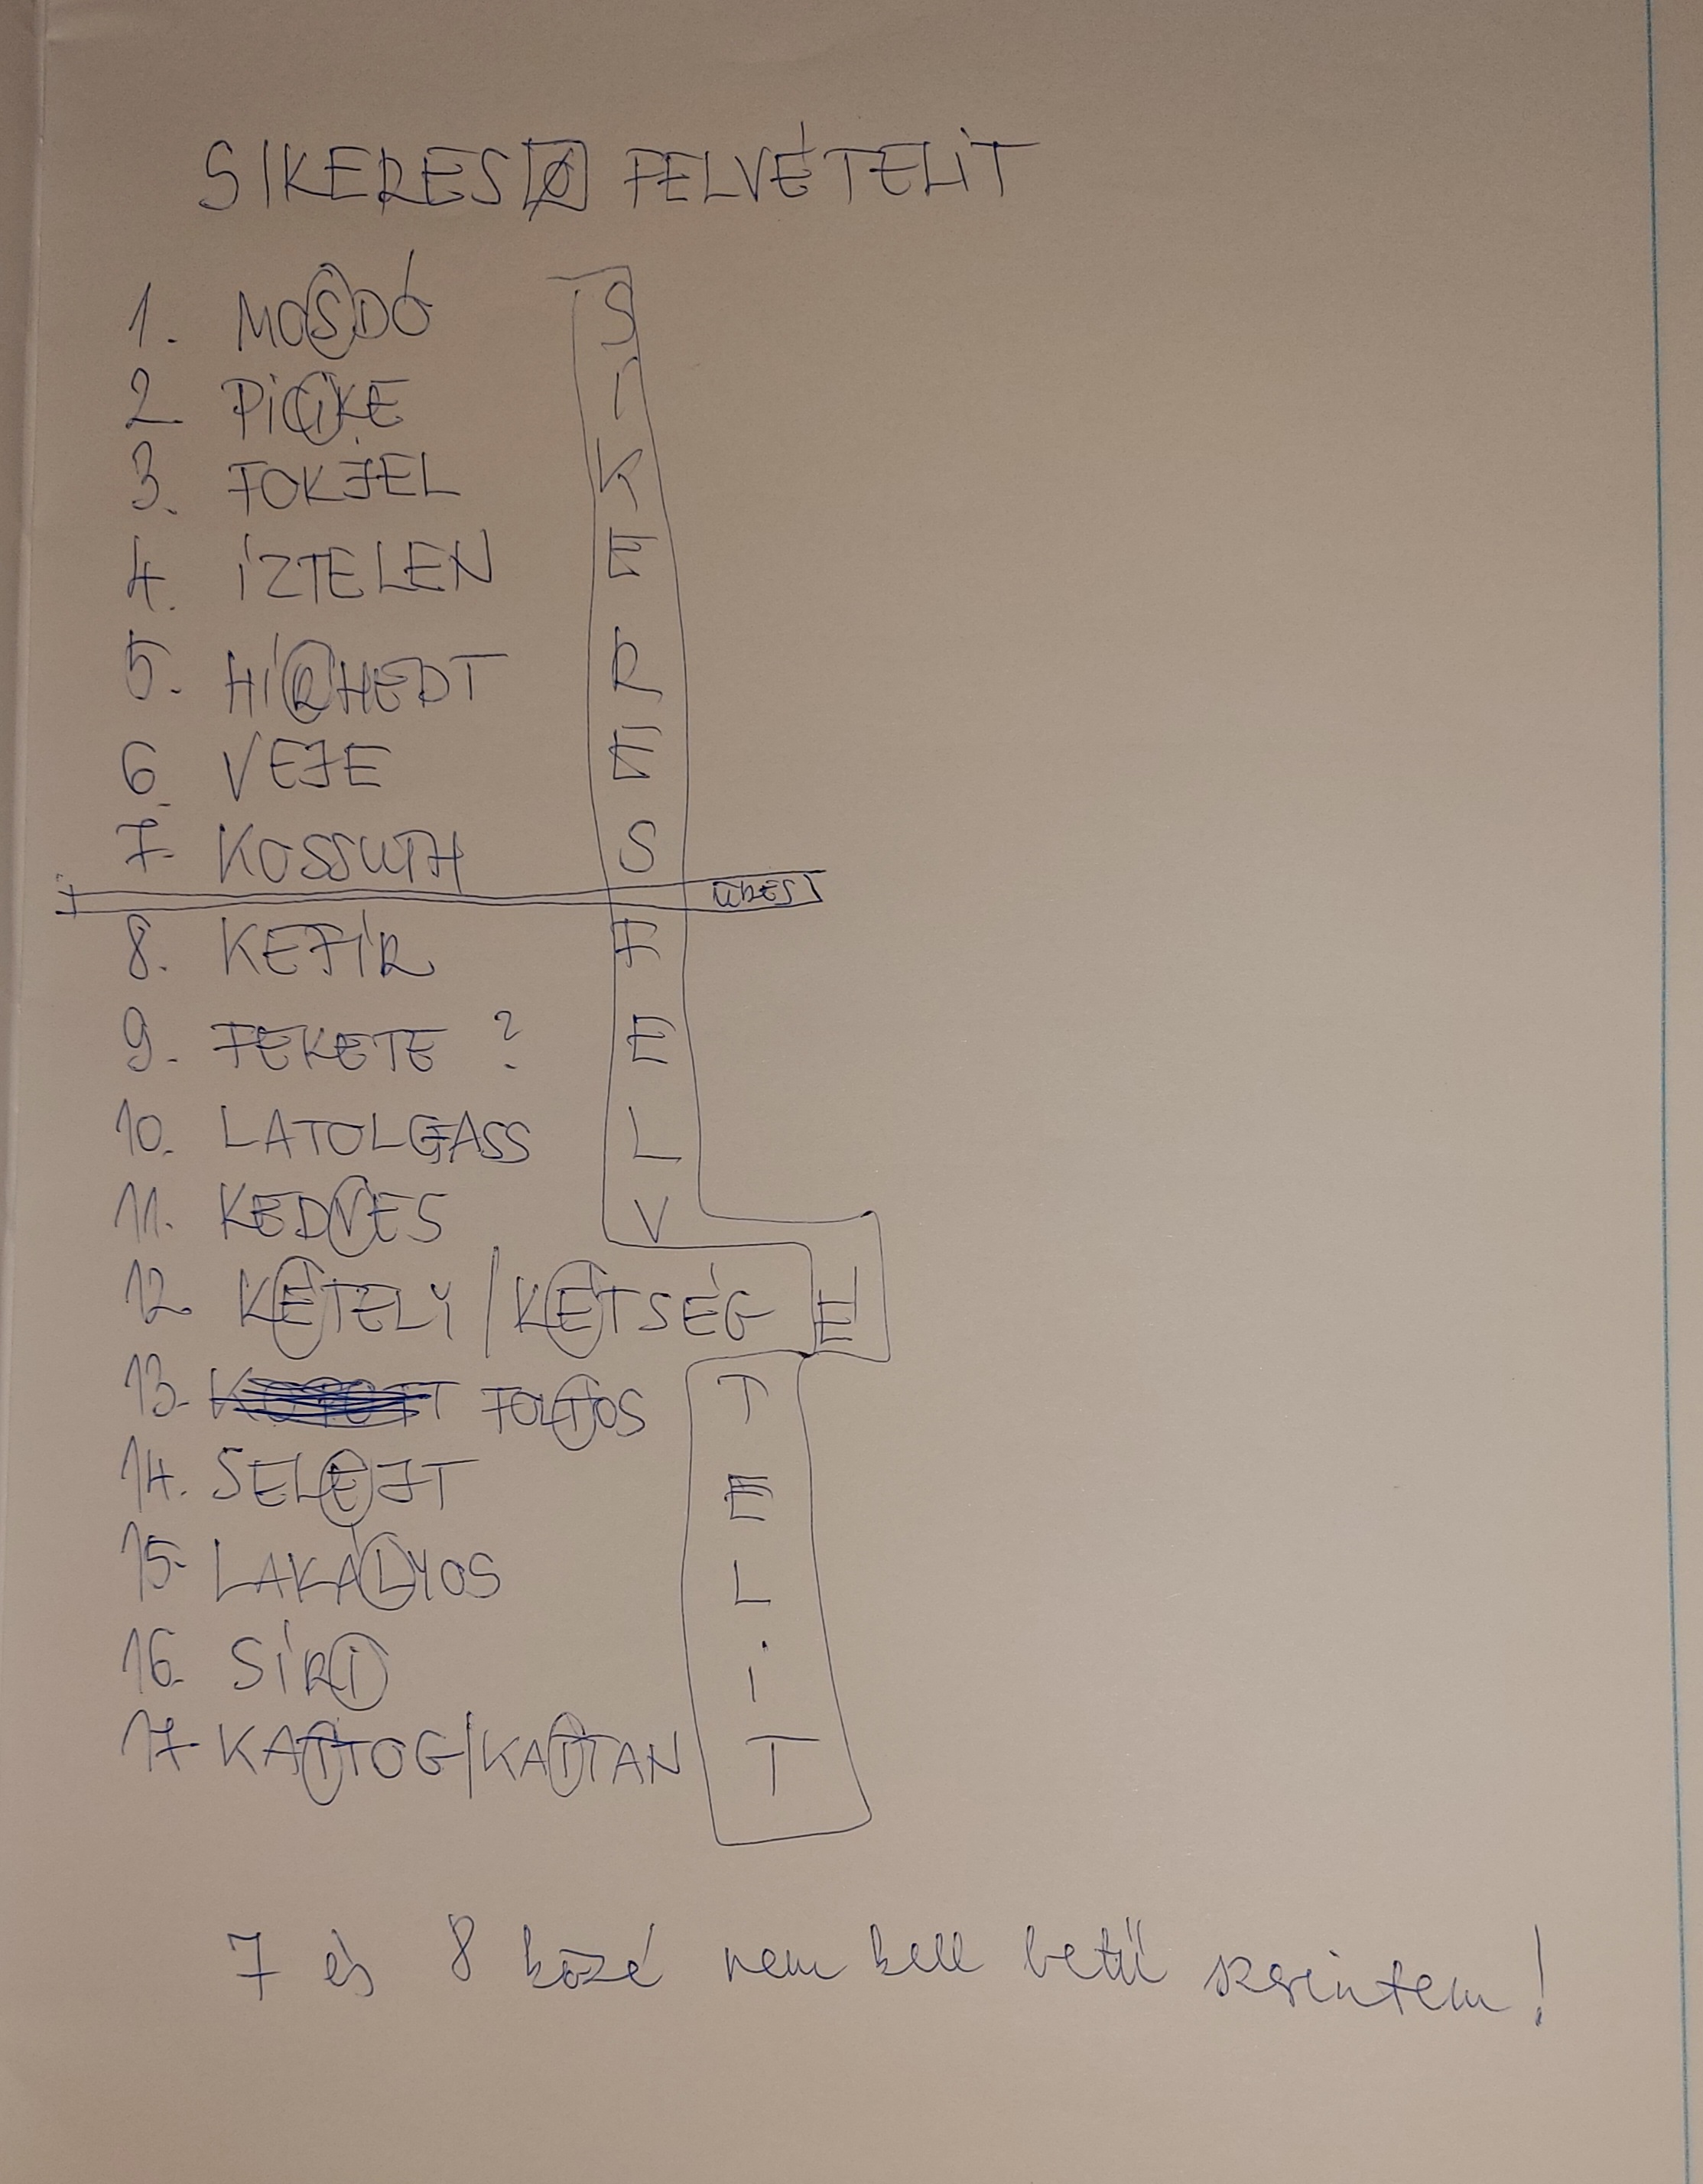 SIKERES Ø FELVÉTELIT
1. MOSDÓ S
2. PICIKE I
3. FOKJEL K
4. ÍZTELEN E
5. HÍRHEDT R
6. VEJE E
7. KOSSUTH S
ÜRES
8. KEFÍR F
9. FEKETE ? E
10. LATOLGASS L
11. KEDVES V
12. KÉTELY / KÉTSÉG É
13. FOLTOS T
14. SELEJT E
15. LAKÁLYOS L
16. SÍRI I
17. KATTOG/KATTAN T
7 és 8 közé nem kell betű szerintem!